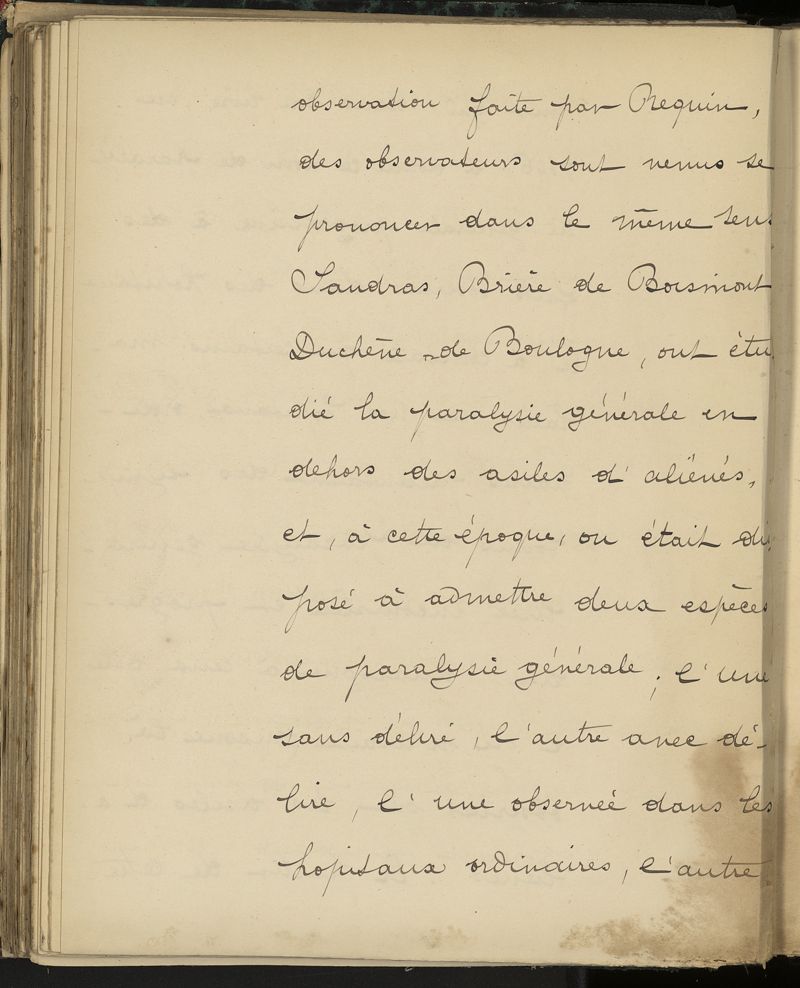 observation faite par Requin,
des observateurs sont venus se
prononcer dans le même sens
Sandras, Brière de Boismont
Duchêne de Boulogne, ont étu
dié la paralysie générale en
dehors des asiles d'aliénés,
et, à cette époque, on était dis
posé à admettre deux espèces
de paralysie générale ; l'une
sans délire, l'autre avec dé-
lire, l'une observée dans les
hopitaux ordinaires, l'autre